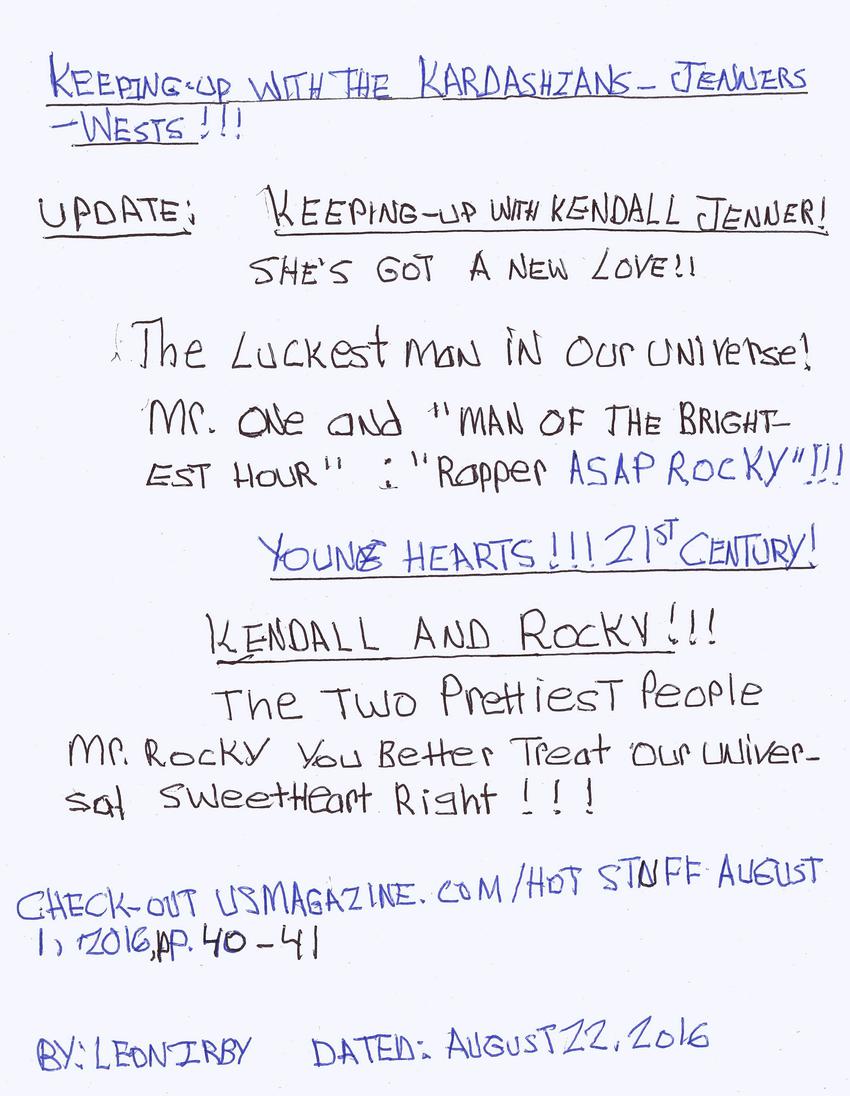 KEEPING-UP WITH THE KARDASHIANS - JENNERS
- WESTS !!!
UPDATE: KEEPING-UP WITH KENDALL JENNER!
SHE'S GOT A NEW LOVE!!
The Luckest man iN our UNIVerse!
Mr. ONe and "MAN OF THE BRIGHT-
EST HOUR" : "Rapper ASAP ROCKY"!!!
YOUNG HEARTS !!! 21ST CENTURY!
KENDALL AND ROCKY!!!
The Two PrettiesT People
Mr. Rocky You Better Treat our univer-
sal SweetHeart Right !!!
CHECK-OUT USMAGAZINE.COM/HOT STUFF AUGUST
1, 2016, pp. 40-41
BY: LEON IRBY DATED: AUGUST 22, 2016